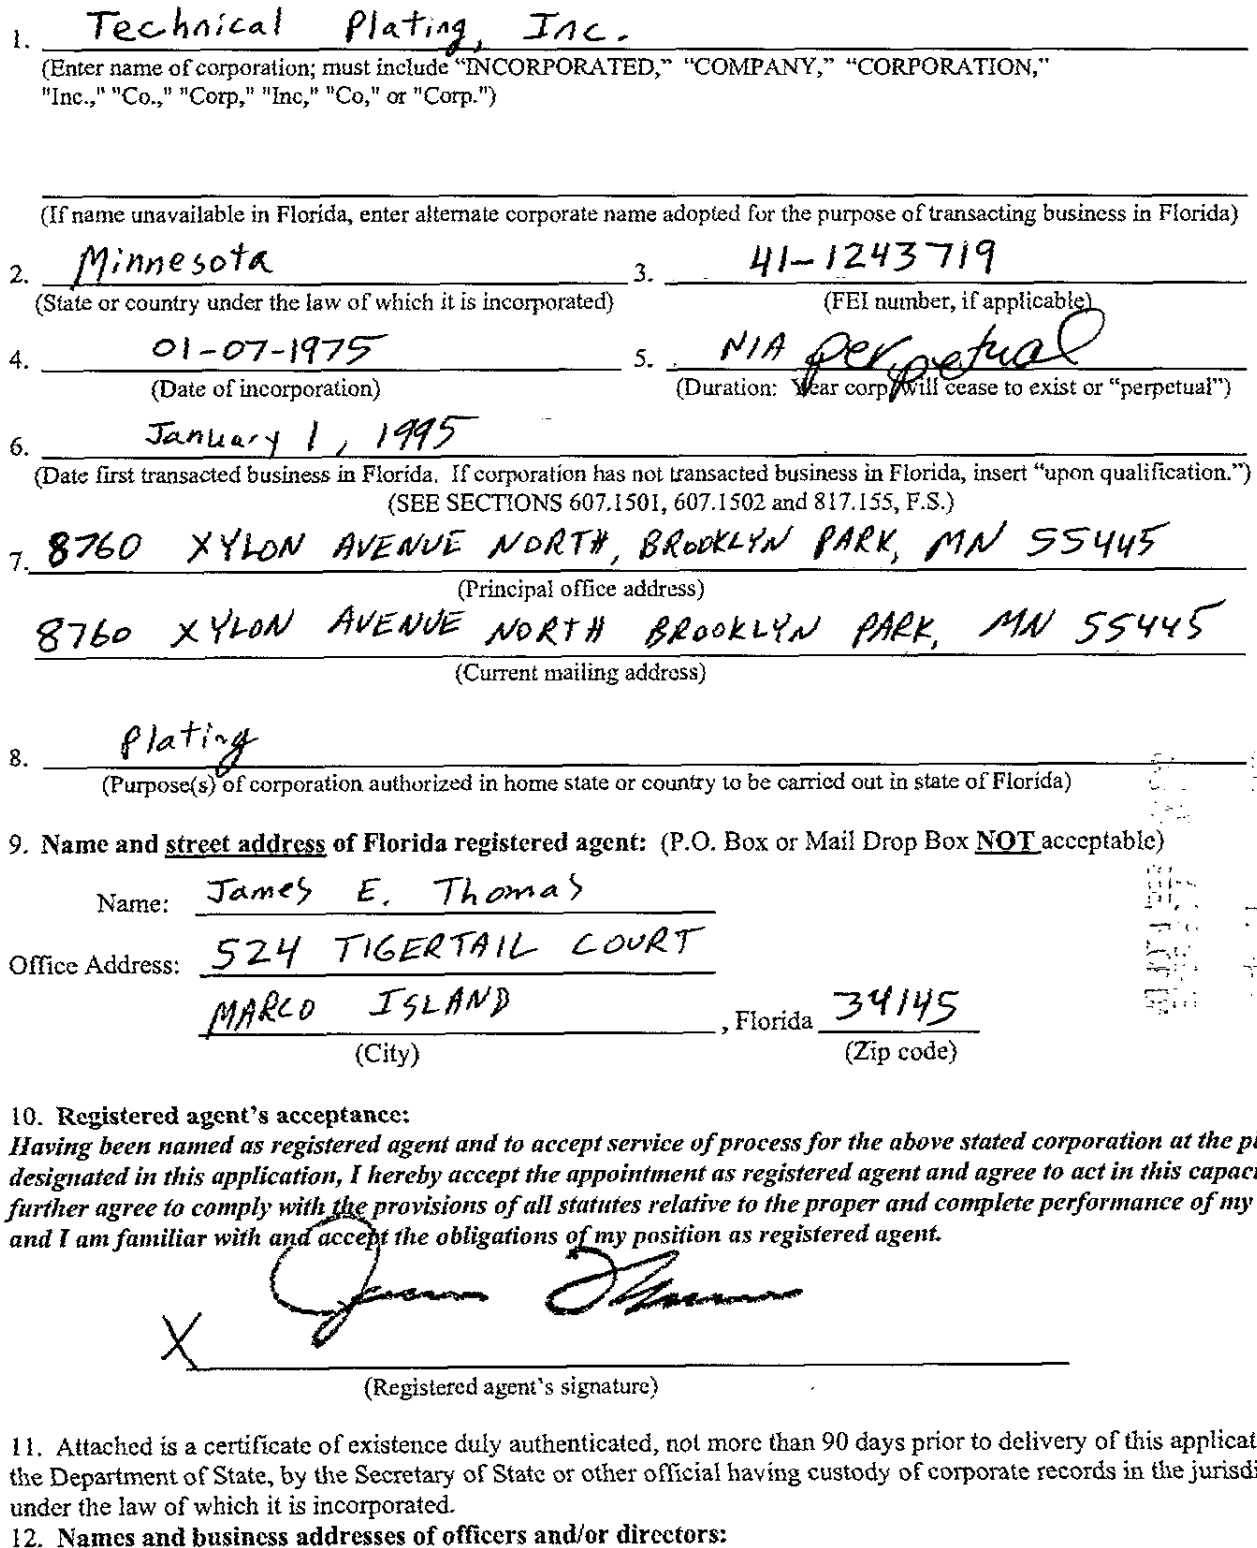 1. Technical Plating, Inc.
(Enter name of corporation; must include “INCORPORATED,” “COMPANY,” “CORPORATION,”
"Inc.," "Co.," "Corp," "Inc," "Co," or "Corp.")
(If name unavailable in Florida, enter alternate corporate name adopted for the purpose of transacting business in Florida)
2. Minnesota 3. 41-1243719
(State or country under the law of which it is incorporated) (FEI number, if applicable)
4. 01-07-1975 5. N/A perpetual
(Date of incorporation) (Duration: Year corp. will cease to exist or “perpetual”)
6. January 1, 1995
(Date first transacted business in Florida. If corporation has not transacted business in Florida, insert “upon qualification.”)
(SEE SECTIONS 607.1501, 607.1502 and 817.155, F.S.)
7. 8760 XYLON AVENUE NORTH, BROOKLYN PARK, MN 55445
(Principal office address)
8760 XYLON AVENUE NORTH BROOKLYN PARK, MN 55445
(Current mailing address)
8. Plating
(Purpose(s) of corporation authorized in home state or country to be carried out in state of Florida)
9. Name and street address of Florida registered agent: (P.O. Box or Mail Drop Box NOT acceptable)
Name: James E. Thomas
Office Address: 524 TIGERTAIL COURT
MARCO ISLAND, Florida 34145
(City) (Zip code)
10. Registered agent’s acceptance:
Having been named as registered agent and to accept service of process for the above stated corporation at the pl
designated in this application, I hereby accept the appointment as registered agent and agree to act in this capaci
further agree to comply with the provisions of all statutes relative to the proper and complete performance of my
and I am familiar with and accept the obligations of my position as registered agent.
X James Thomas
(Registered agent’s signature)
11. Attached is a certificate of existence duly authenticated, not more than 90 days prior to delivery of this applicat
the Department of State, by the Secretary of State or other official having custody of corporate records in the jurisdi
under the law of which it is incorporated.
12. Names and business addresses of officers and/or directors: